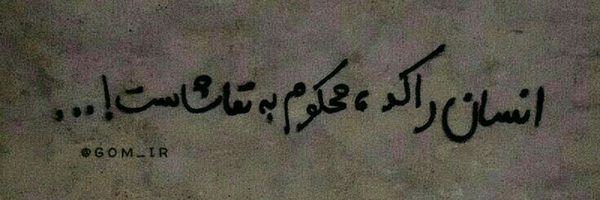 انسان راکد، محکوم به تقاشاست!...
@GOM_IR